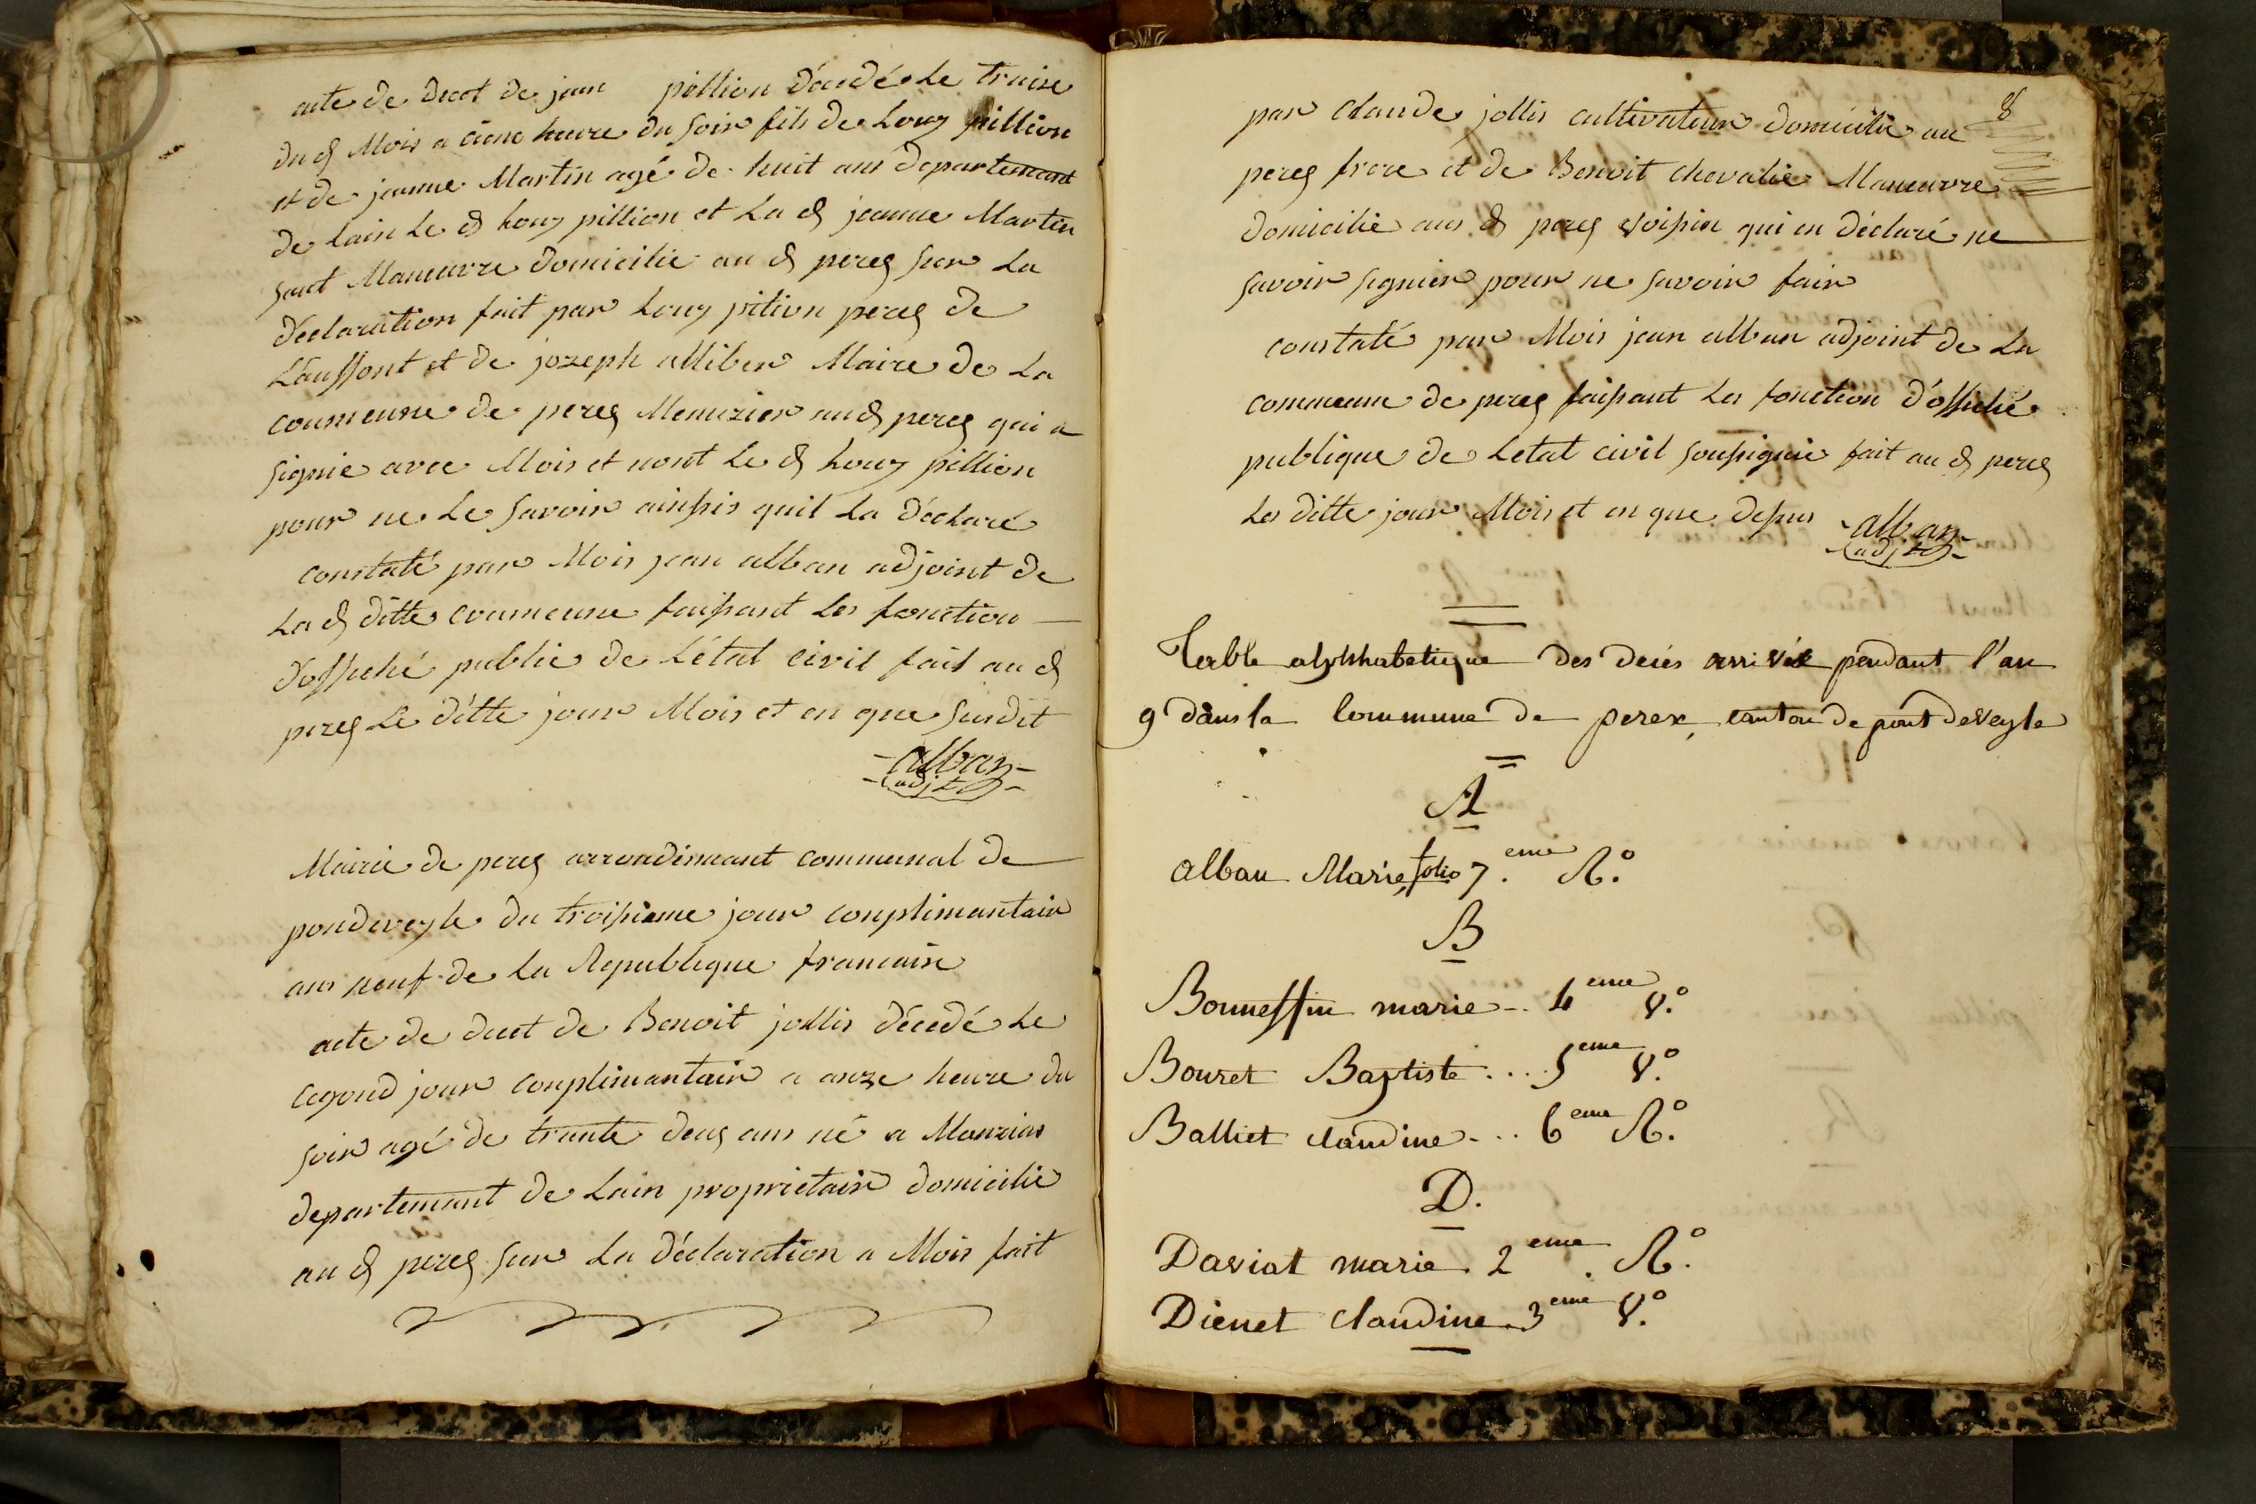 acte de decet de jean pillion décedé le traise
du d Mois a cienc heure du soir fils de Louy pillion
et de jeanne Martin agé de huit ans departement
de lain le d louy pillion et la d jeanne Martin
sont Maneuvre domicilie au d perex sur la
déclaration fait par Louy pition perex de
Lauffont et de jozeph alliber Maire de La
coumeune de perex Menuzier aud perex qui a
signie avec Mois et nont le d Louy pillion
pour ne le savoir ainssis quil la déclaré
constaté par Mois jean alban adjoint de
La d ditte coumeune faissant les fonction
d'offiché public de L'état civil fait au d
perex le ditte jour Mois et en que susdit
alban
adjt
Mairie de perex arrondimant communal de
pondeveyle du troissieme jour conplimantair
ans neuf de la Republique francaise
acte de decet de Benoit jollis décedé le
cegond jour conplimantair a onze heure du
soir agé de trante deux ans né a Manzias
departemant de Lain proprietair domicilie
au d perex sur La déclaration a Mois fait
8
par claude jollis cultivateur domicilie au
perex frere et de Benoit chevalie Maneuvre
domicilie aus d perex voissin qui on déclaré ne
savoir signier pour ne savoir fair
constaté par Mois jean alban adjoint de La
commeune de perex faissant les fonction d'offiché
publique de Letat civil soussignié fait au d perex
Les ditte jour Mois et en que dessus
alban
adjt
Table alphhabetique des decés arrivés pendant l'an
9 dans la Commune de perex, canton de pont de veyle
A
alban Marie, folio 7.eme R.o
B
Bonneffin marie .. 4eme V.o
Bouret Baptiste .... 5eme V.o
Balliet claudine ... 6eme R.o
D.
Daviat marie. 2eme. R.o
Dienet claudine. 3eme V.o